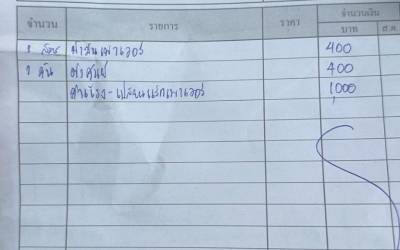 จำนวน รายการ ราคา จำนวนเงิน
บาท ส.ต.
1 น้ำมันเพาเวอร์ 400
1 คัน 400
ค่าแรง - เปลี่ยนแร็คเพาเวอร์ 1000